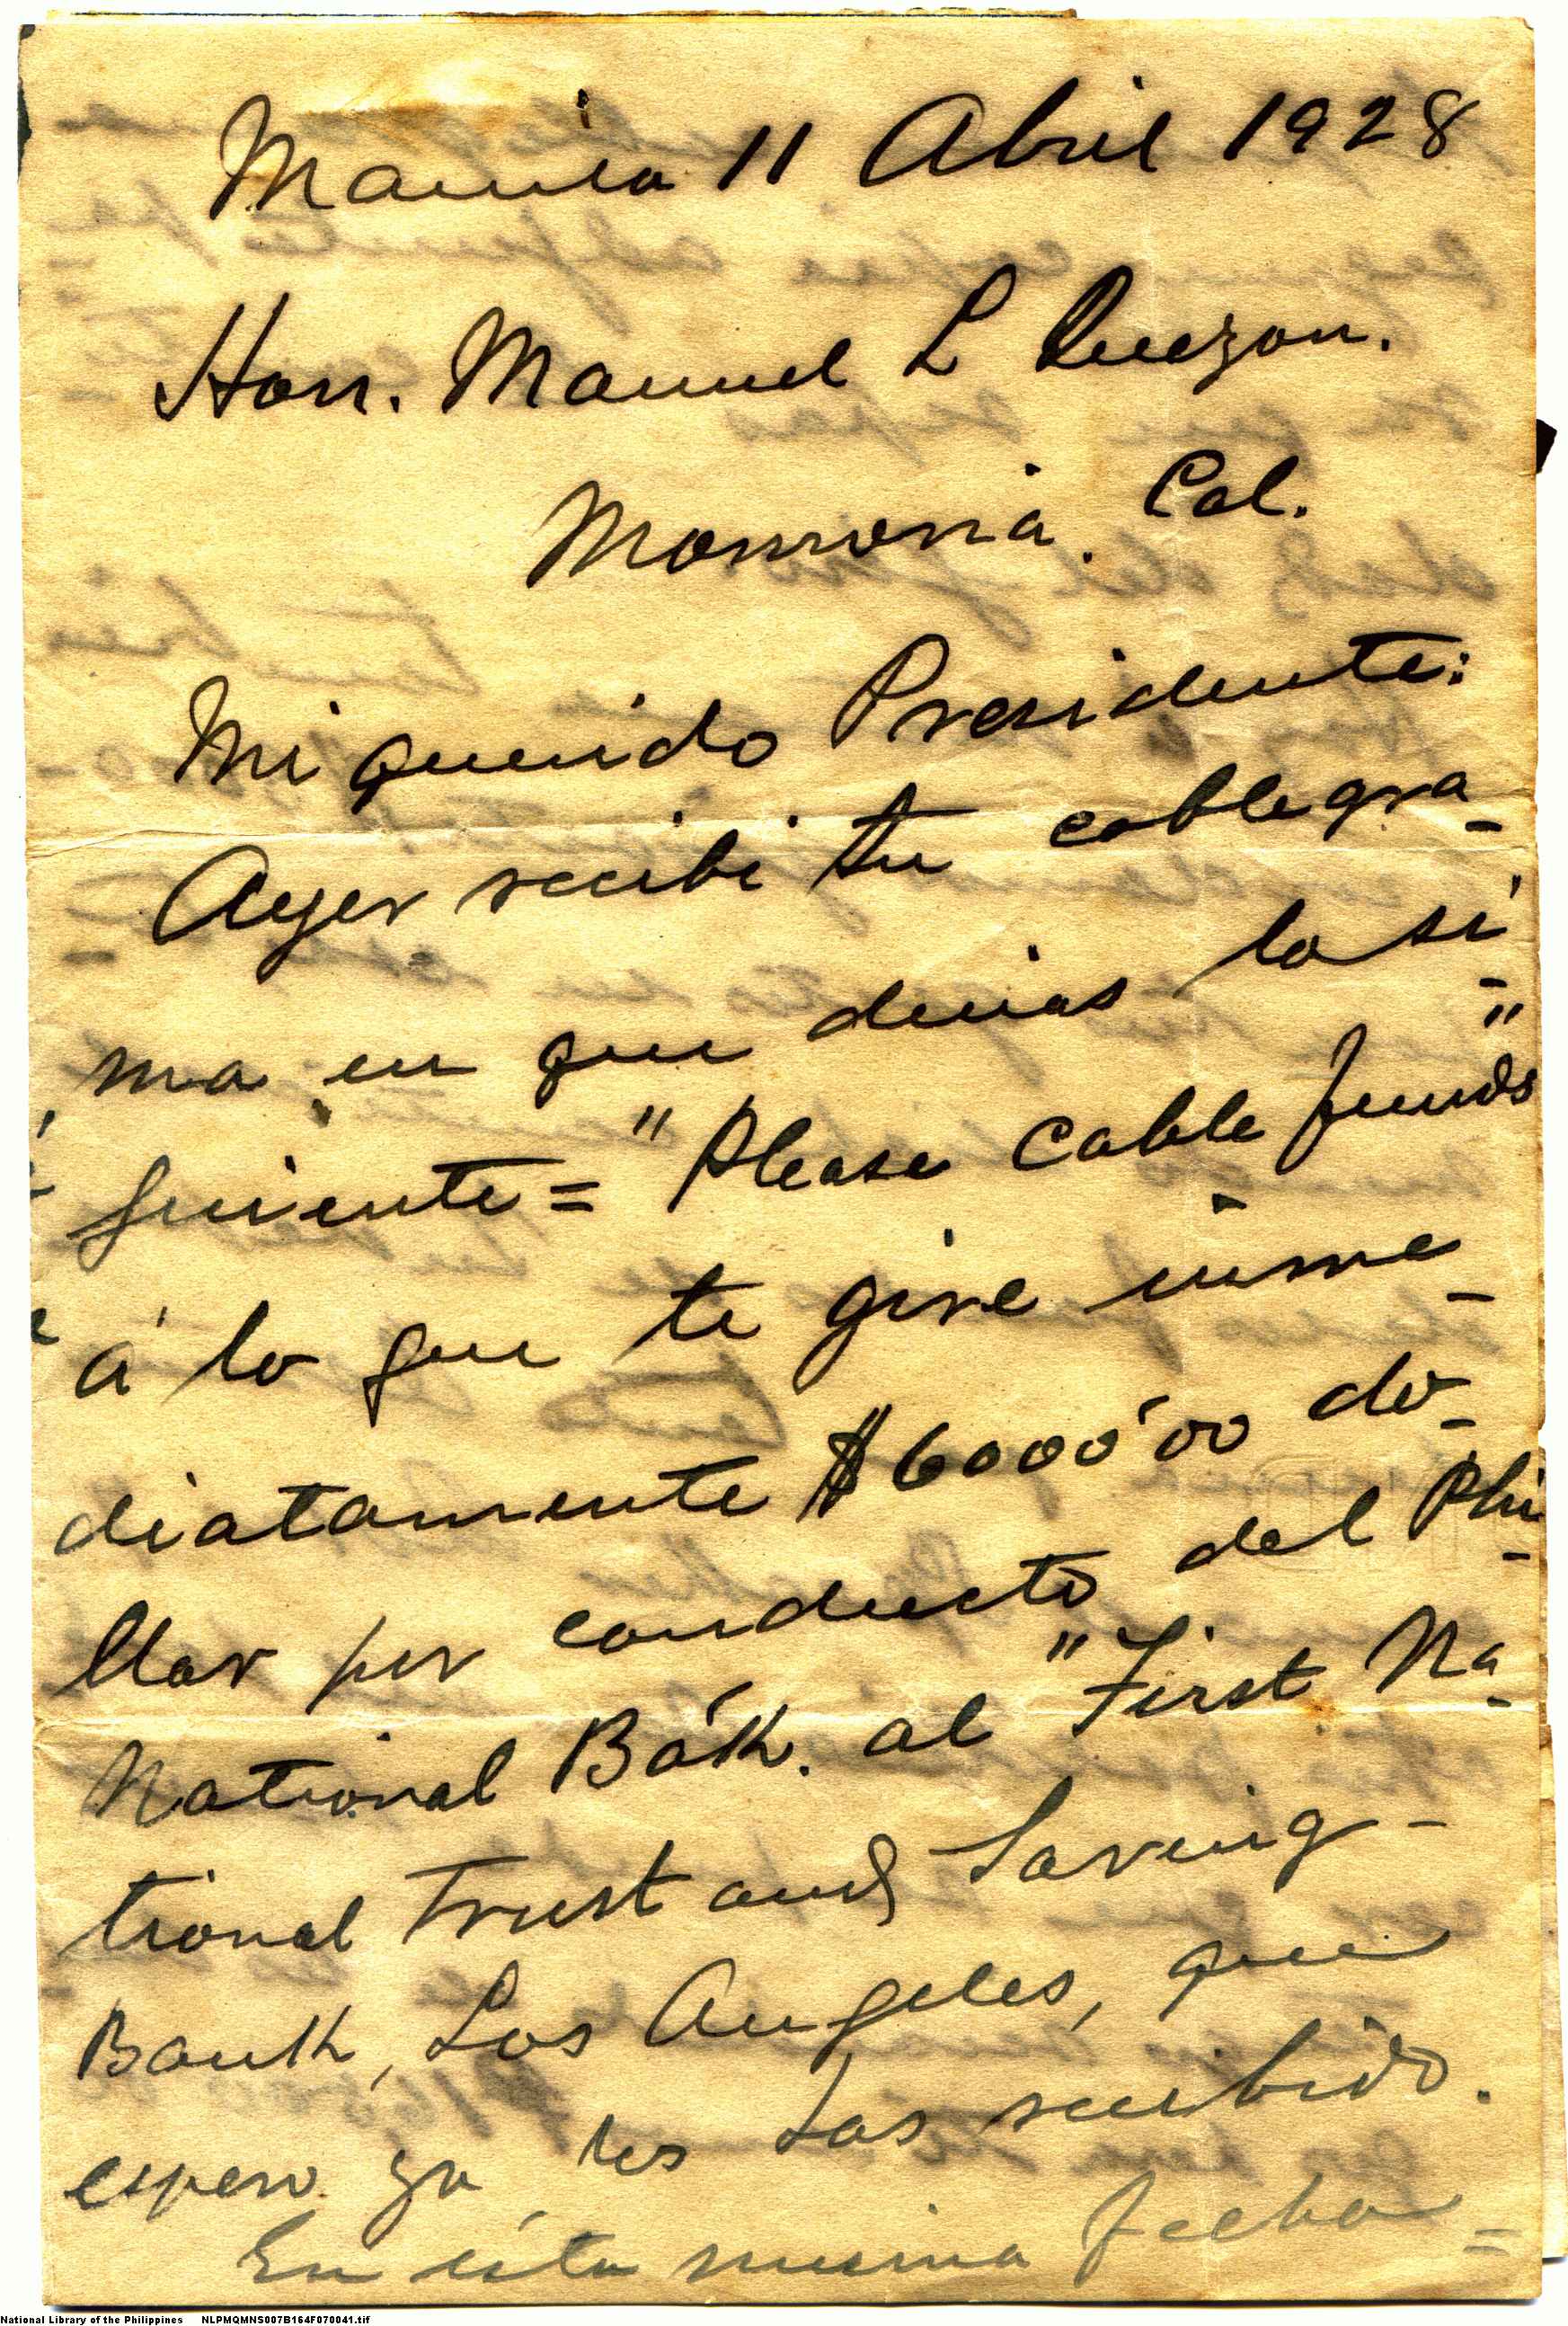 Manila 11 Abril 1928
Hon. Manuel L Quezon.
Monrovia. Cal.
Mi querido Presidente:
Ayer recibi tu cablegra-
ma en que decias lo si-
guiente = "Please cable funds"
á lo que te giré inme-
diatamente $6000'00 do-
llar por conducto del Phi-
National Bãk. al "First Na-
tional Trust and Saving-
Bank, Los Angeles, que
espero ya los has recibido.
En ésta misma fecha =
National Library of the Philippines NLPMQMNS007B164F070041.tif